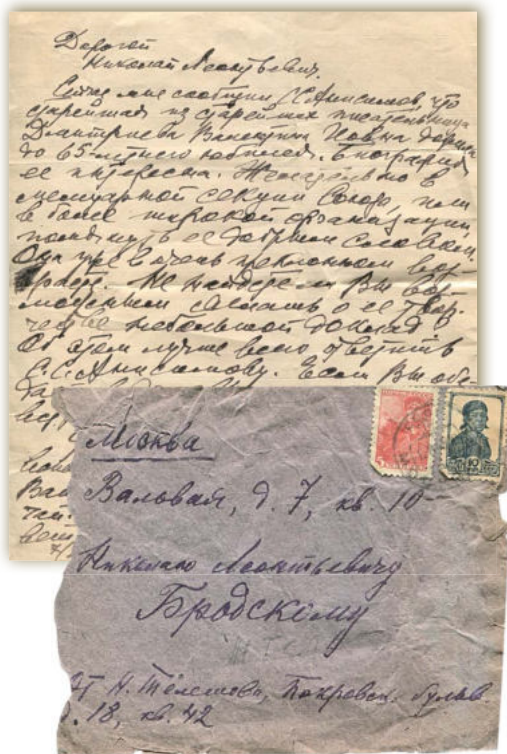 Дорогой
Николай Леонтьевич.
Сейчас мне сообщил С.С. Анисимов, что
старейшая из старейших писательница
Дмитриева Валентина Иовна дожила
до 65-летнего юбилея. Биография
ее интересна. Желательно в
мемориальной секции Союза, или
в более широкой организации,
помянуть ее добрым словом.
Она уже в очень преклонном воз-
расте. Не найдете ли Вы воз-
можным сделать о ее твор-
честве небольшой доклад
Об этом лучше всего ответить
С.С. Анисимову. Если Вы
Москва
Вальвая, д. 7, кв. 10
Николаю Леонтьевичу
Бродскому
От Н. Телешова, Покровск. бульв.
д. 18, кв. 42